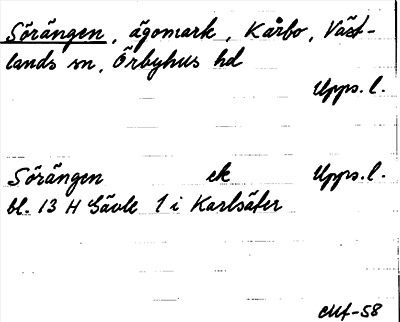 Sörängen, ägomark, Kårbo, Väst-
lands sn, Örbyhus hd
Upps. l.
Sörängen ek Upps. l.
bl. 13 H Gävle 1 i Karlsäter
CMf-58